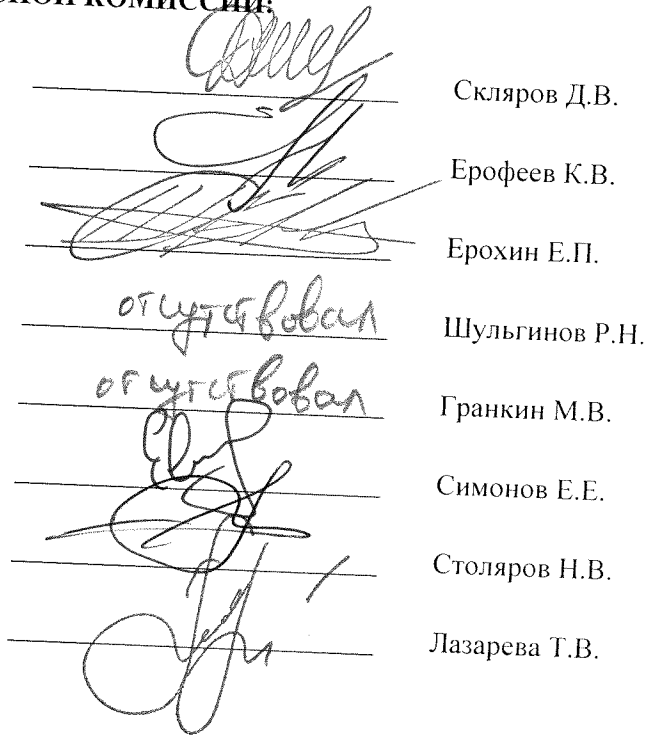 КОМИССИИ:
Скляров Д.В.
Ерофеев К.В.
Ерохин Е.П.
отсутствовал Шульгинов Р.Н.
отсутствовал Гранкин М.В.
Симонов Е.Е.
Столяров Н.В.
Лазарева Т.В.